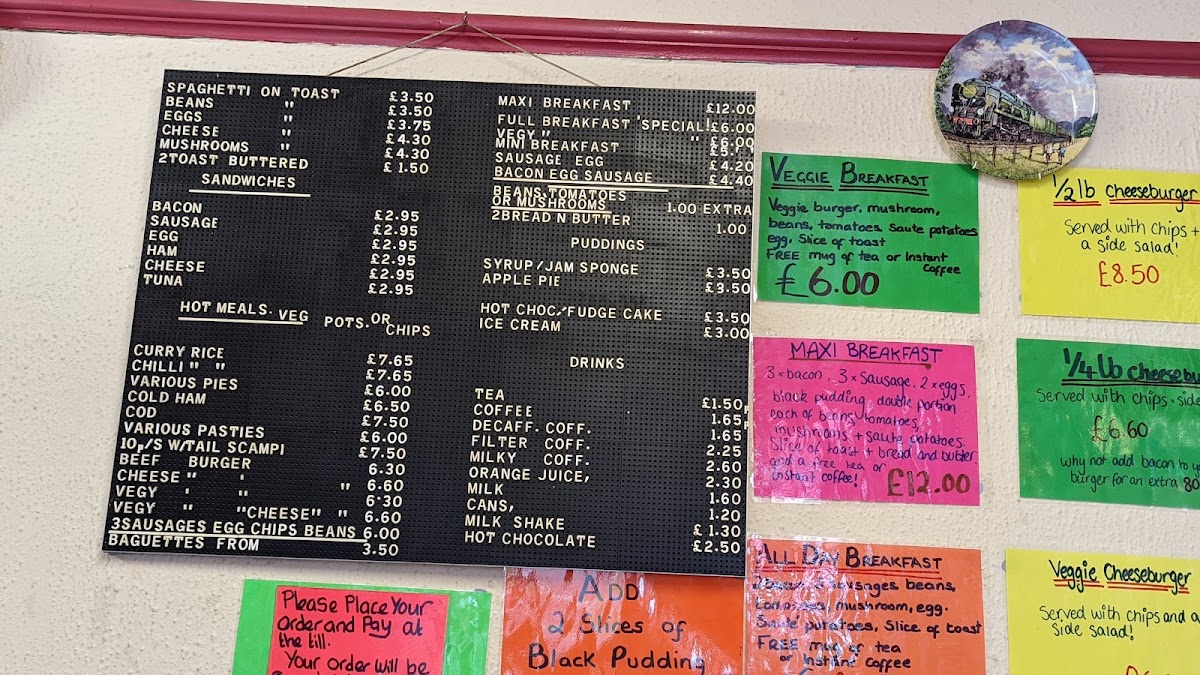 SPAGHETTI ON TOAST £3.50
BEANS " £3.50
EGGS " £3.75
CHEESE " £4.30
MUSHROOMS " £4.30
2TOAST BUTTERED £1.50
SANDWICHES
BACON £2.95
SAUSAGE £2.95
EGG £2.95
HAM £2.95
CHEESE £2.95
TUNA £2.95
HOT MEALS. VEG POTS. OR CHIPS
CURRY RICE £7.65
CHILLI " " £7.65
VARIOUS PIES £6.00
COLD HAM £6.50
COD £7.50
VARIOUS PASTIES £6.00
10P/S W/TAIL SCAMPI £7.50
BEEF BURGER 6.30
CHEESE " ' " 6.60
VEGY ' " 6.30
VEGY " "CHEESE" " 6.60
3SAUSAGES EGG CHIPS BEANS 6.00
BAGUETTES FROM 3.50
MAXI BREAKFAST £12.00
FULL BREAKFAST 'SPECIAL! £6.00
VEGY " " £6.00
MINI BREAKFAST
SAUSAGE EGG £4.20
BACON EGG SAUSAGE £4.40
BEANS.TOMATOES
OR MUSHROOMS 1.00 EXTRA
2BREAD N BUTTER 1.00
PUDDINGS
SYRUP/JAM SPONGE £3.50
APPLE PIE £3.50
HOT CHOC/FUDGE CAKE £3.50
ICE CREAM £3.00
DRINKS
TEA £1.50
COFFEE 1.65
DECAFF. COFF. 1.65
FILTER COFF. 2.25
MILKY COFF. 2.60
ORANGE JUICE, 2.30
MILK 1.60
CANS, 1.20
MILK SHAKE £1.30
HOT CHOCOLATE £2.50
Veggie Breakfast
Veggie burger, mushroom,
beans, tomatoes, Saute potatoes
egg, Slice of toast
FREE mug of tea or Instant
Coffee
£6.00
MAXI BREAKFAST
3 x bacon, 3 x Sausage, 2 x eggs,
black pudding, double portion
each of beans, tomatoes,
mushrooms + saute potatoes.
Slice of toast + bread and butter
and a free tea or
instant coffee!
£12.00
All Day Breakfast
sausages beans,
tomatoes, mushroom, egg.
Saute potatoes, Slice of toast
FREE mug of tea
or Instant coffee
1/2 lb cheeseburger
Served with chips +
a side salad!
£8.50
1/4 lb cheesebu
Served with chips + side
£6.60
why not add bacon to y
burger for an extra 80
Veggie Cheeseburger
Served with chips and a
side salad!
Please Place Your
Order and Pay at
the till.
Your order will be
ADD
2 Slices of
Black Pudding